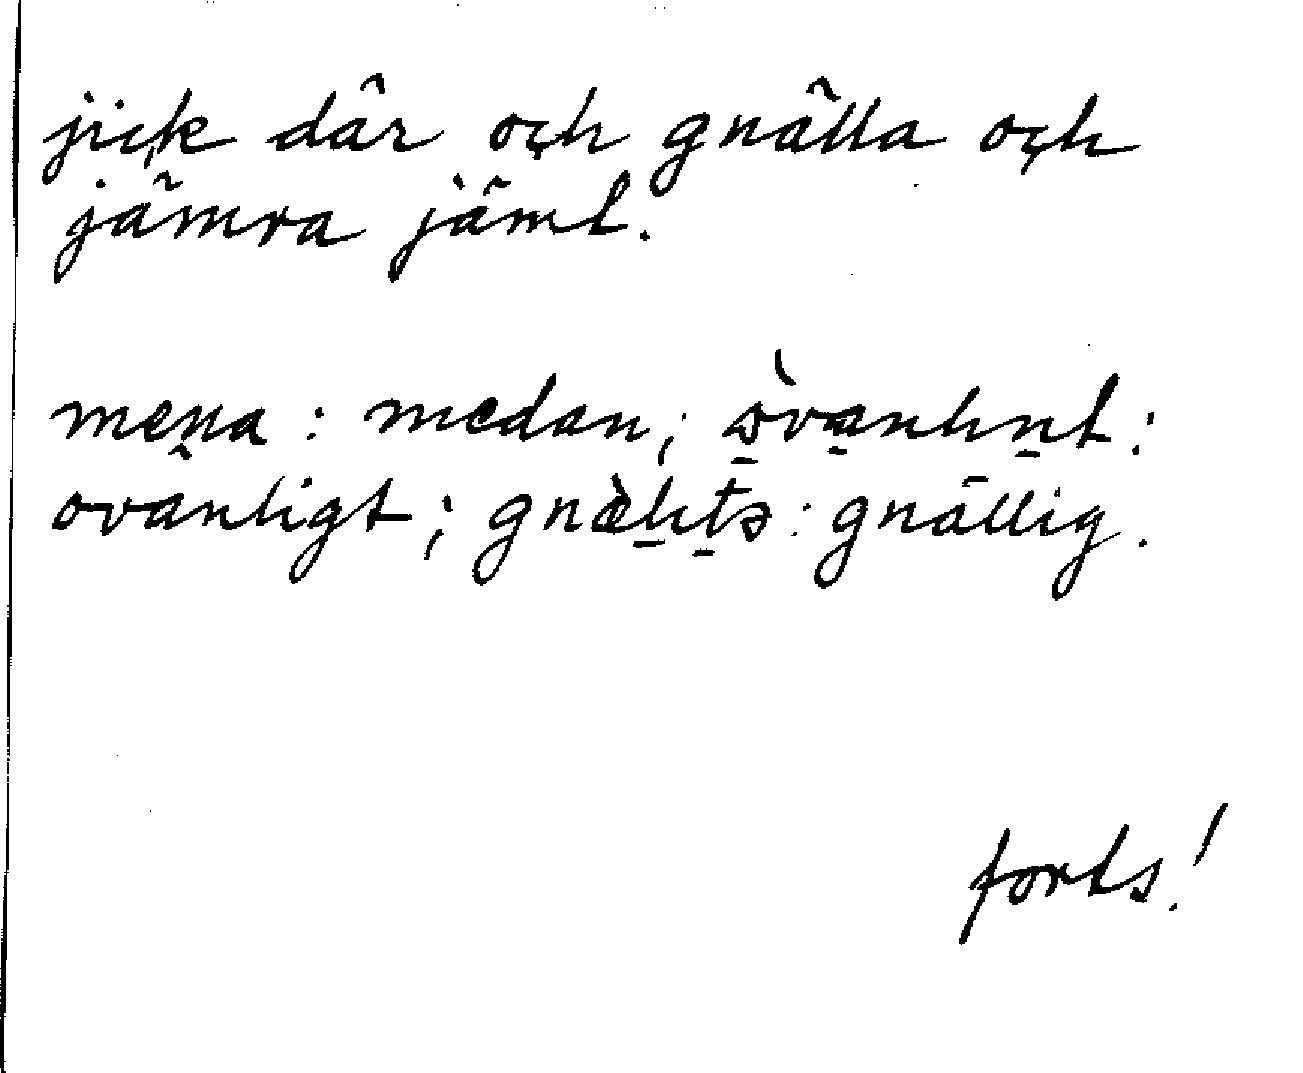 jick där och gnälla och
jämra jämt.
mena : medan ; òvanhnt :
ovanligt ; gnæ̀hts : gnällig .
forts!